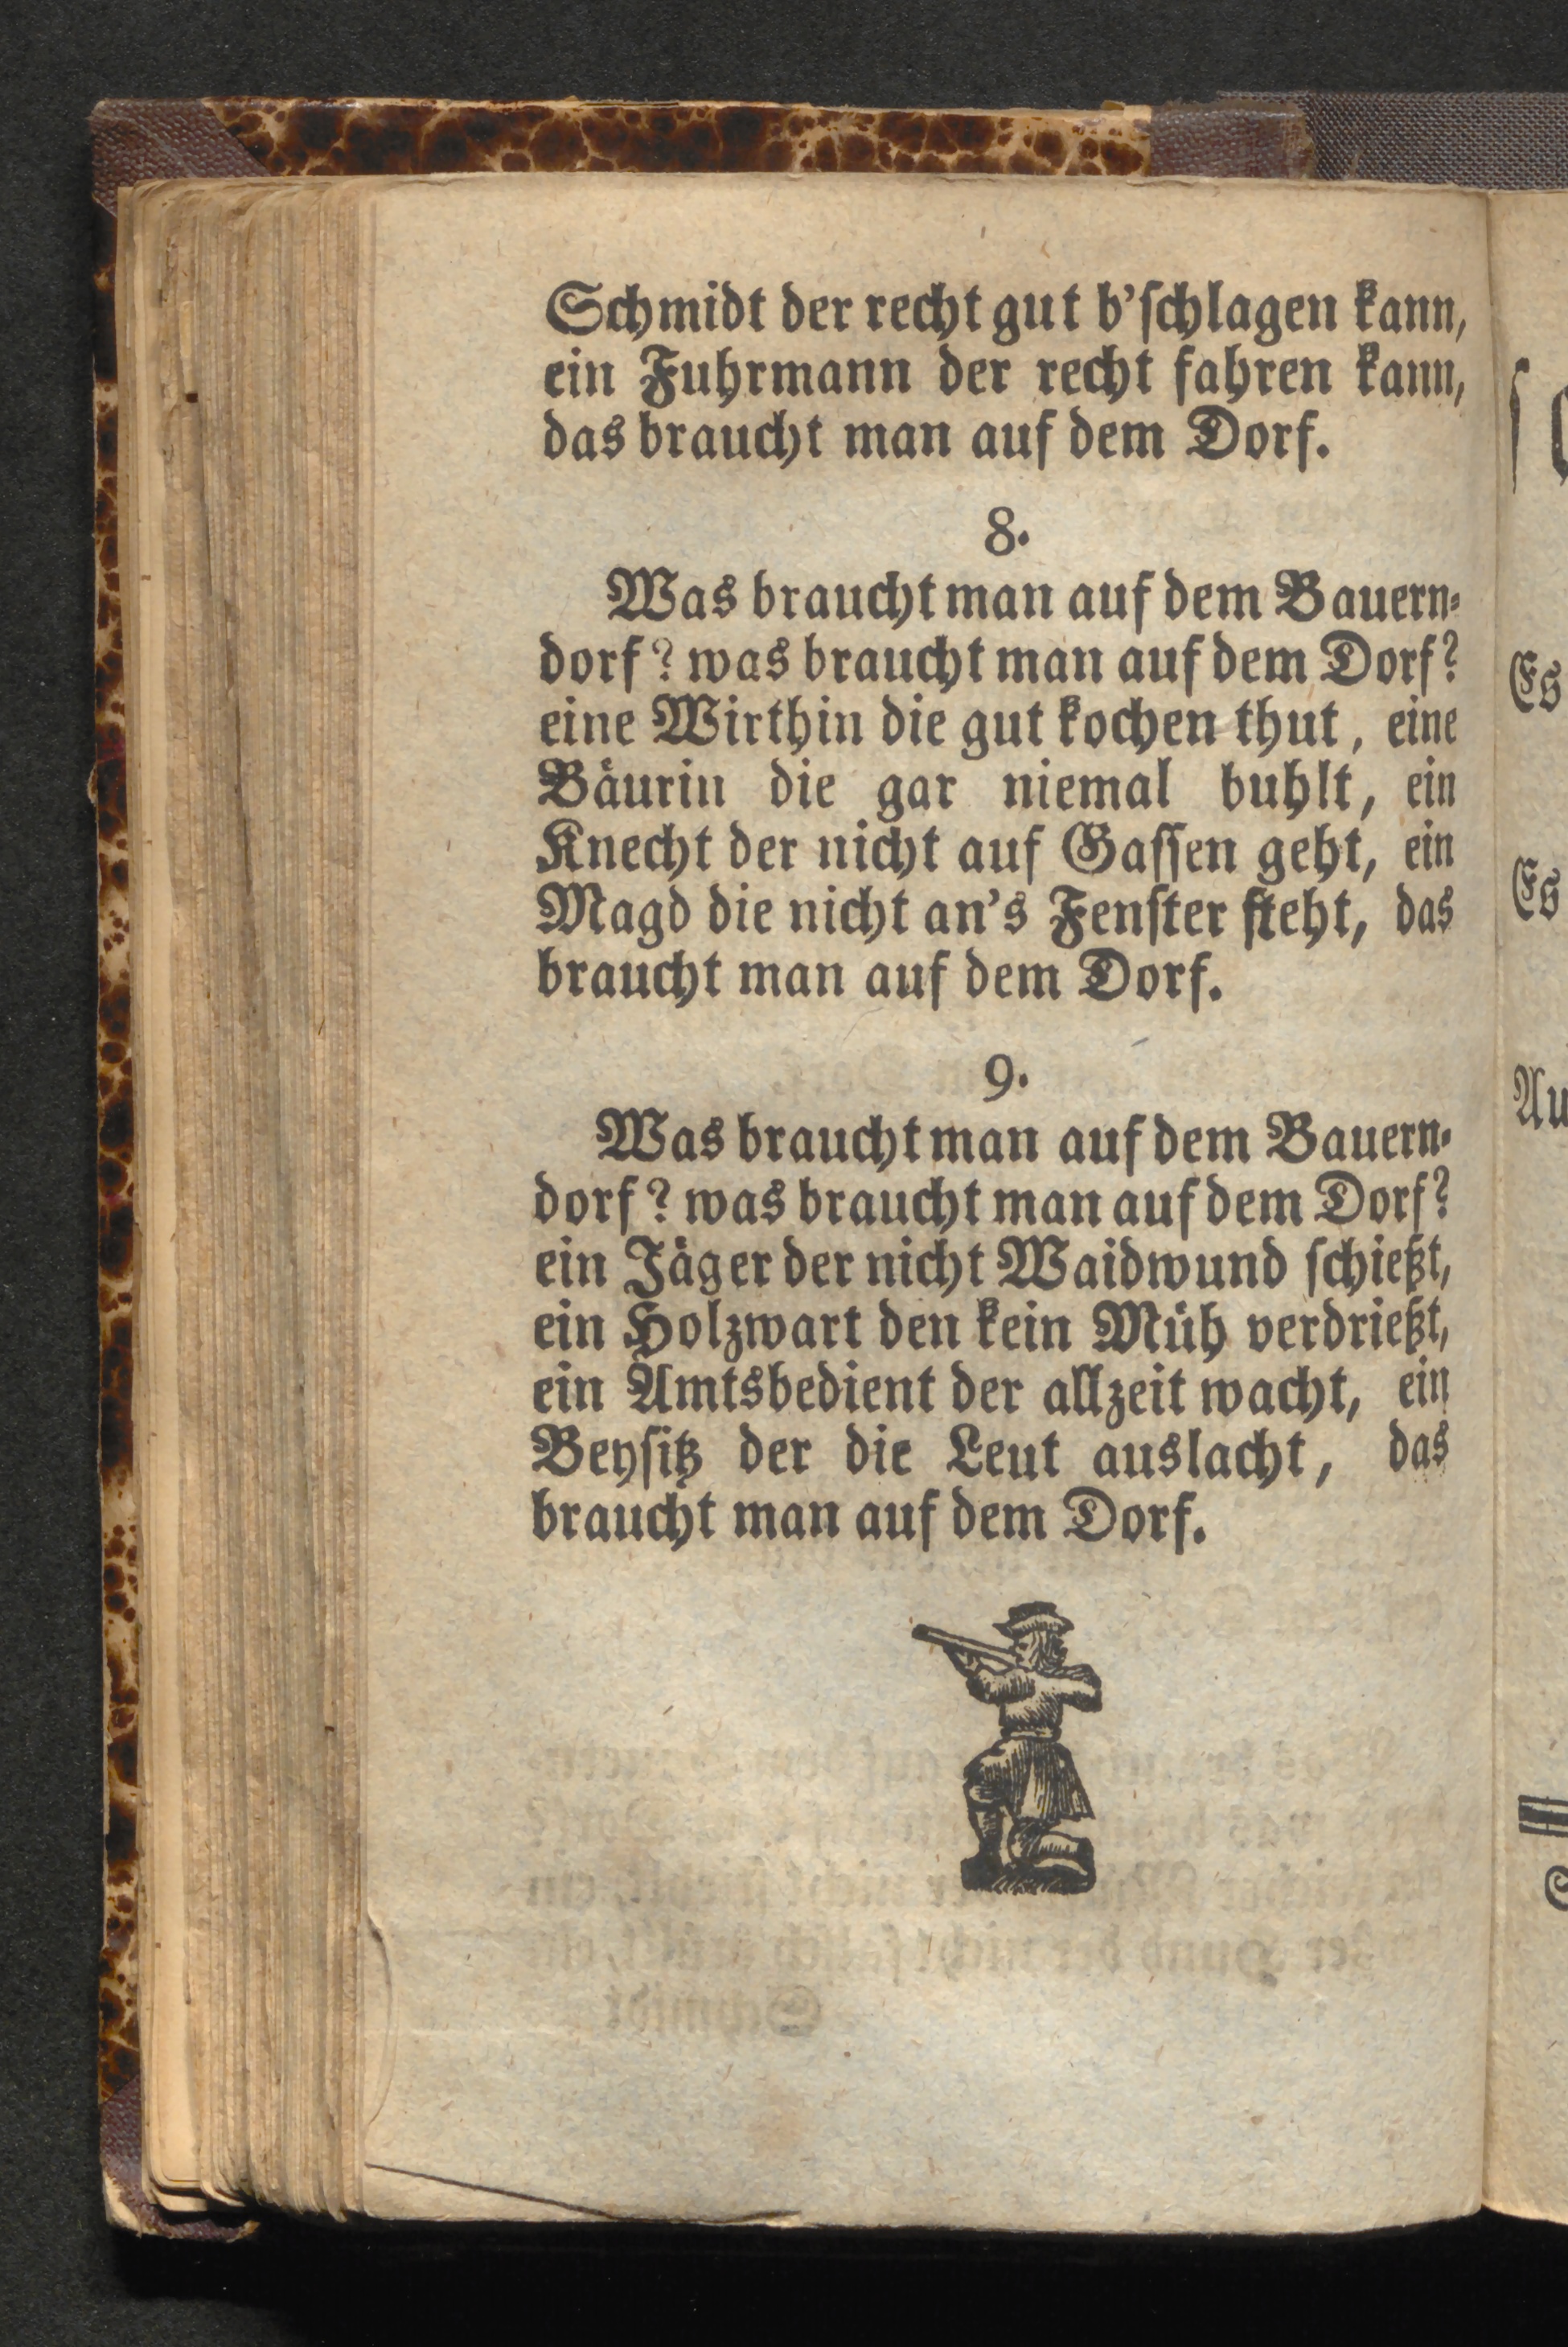 Schmidt der recht gut b'ſchlagen kann,
ein Fuhrmann der recht fahren kann,
das braucht man auf dem Dorf.
8.
Was braucht man auf dem Bauern⸗
dorf? was braucht man auf dem Dorf?
eine Wirthin die gut kochen thut, eine
Bäurin die gar niemal buhlt, ein
Knecht der nicht auf Gaſſen geht, ein
Magd die nicht an's Fenſter ſteht, das
braucht man auf dem Dorf.
9.
Was braucht man auf dem Bauern⸗
dorf? was braucht man auf dem Dorf?
ein Jäger der nicht Waidwund ſchießt,
ein Holzwart den kein Müh verdrießt,
ein Amtsbedient der allzeit wacht, ein
Beyſitz der die Leut auslacht, das
braucht man auf dem Dorf.
Es
Es
Au